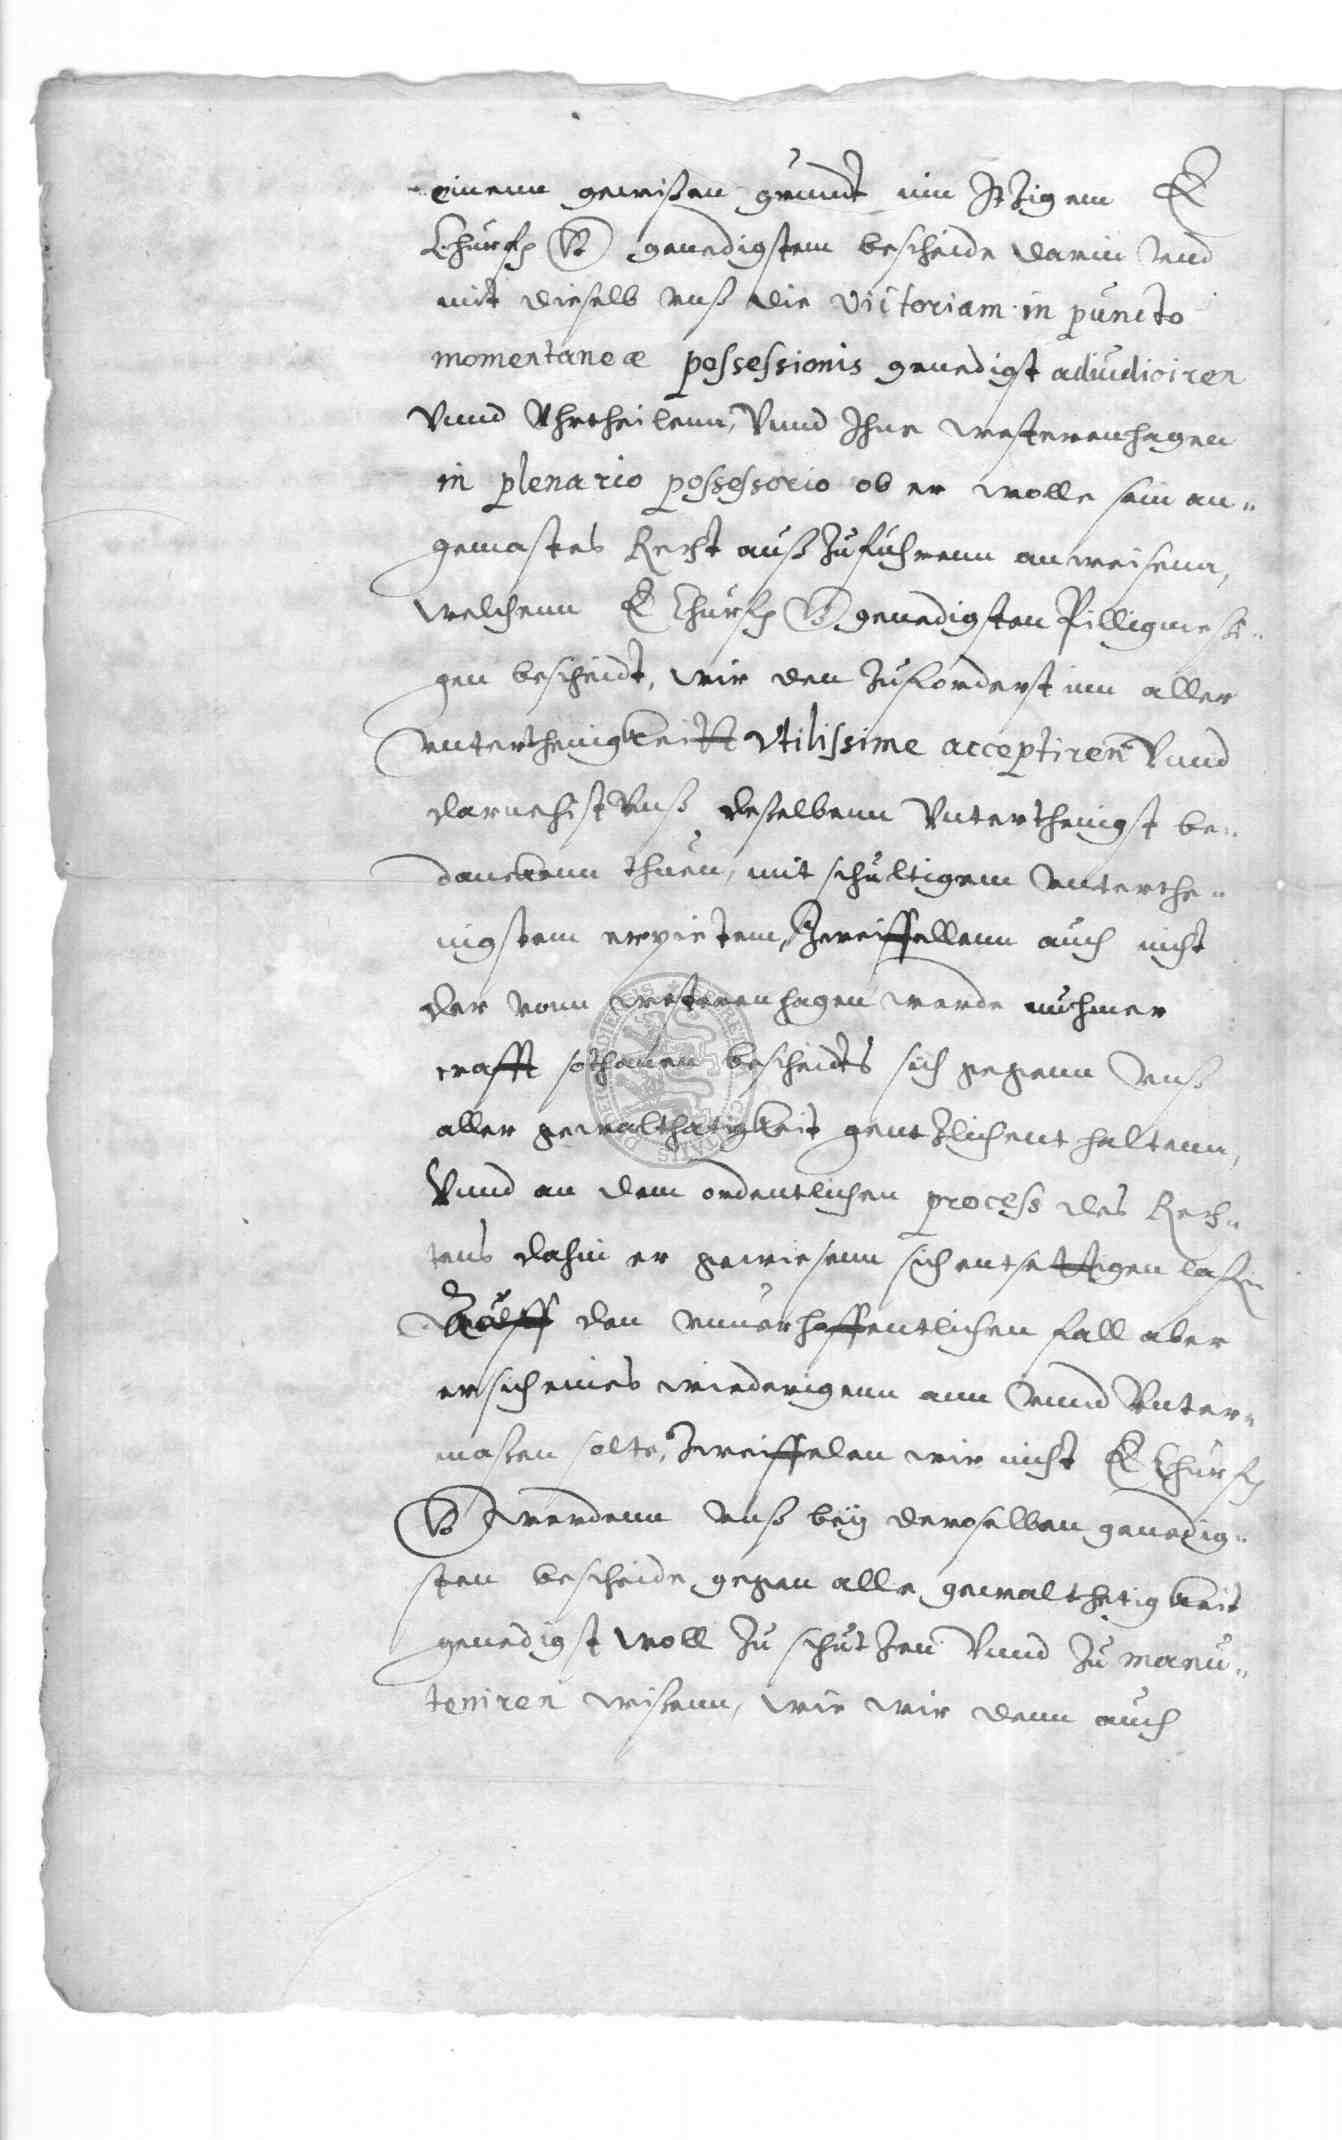 einenn gewißen grundt inn Itzigem E
Churfl G genedigstem bescheide darin vnd
mit dieselb vnß die victoriam in puncto
momentaneæ possessionis genedigst adiudiciren
Vnnd Vhrtheilenn, Vnnd Ihne westerenhagen
in plenario possessorio ob er wolle sein an-
gemastes Recht auß Zufuhrenn anweisenn,
welchenn E Churfl G genedigsten Pilligmeßi-
gen bescheidt, wir den Zuforderst inn aller
vnterthenigkeitt vtilissime acceptiren Vnnd
darnehist Vnß deßelbenn Vnterthenigst be-
danckenn thuen, mit schultigem vnterthe-
nigstem erpietem, Zweiffellenn auch nicht
der vonn westerenhagen werde nuhmer
crafft sothanen bescheidts sich gegenn vnß
aller gewalthatigkeit gentzlich enthaltenn,
Vnnd an dem ordentlichen process des Rech-
tens dahin er gewiesenn sich ersettigen laßen
Auff den vnuerhoffentlichen fall aber
er sich eines wiederigenn ann vnnd Vnter-
maßen solte, Zweiffelen wir nicht E Churfl
G werdenn vnß beÿ deroselben genedig-
sten bescheide gegen alle gewalthetigkeit
genedigst woll Zu schutzen Vnnd Zu manu-
teniren wißenn, wie wir denn auch